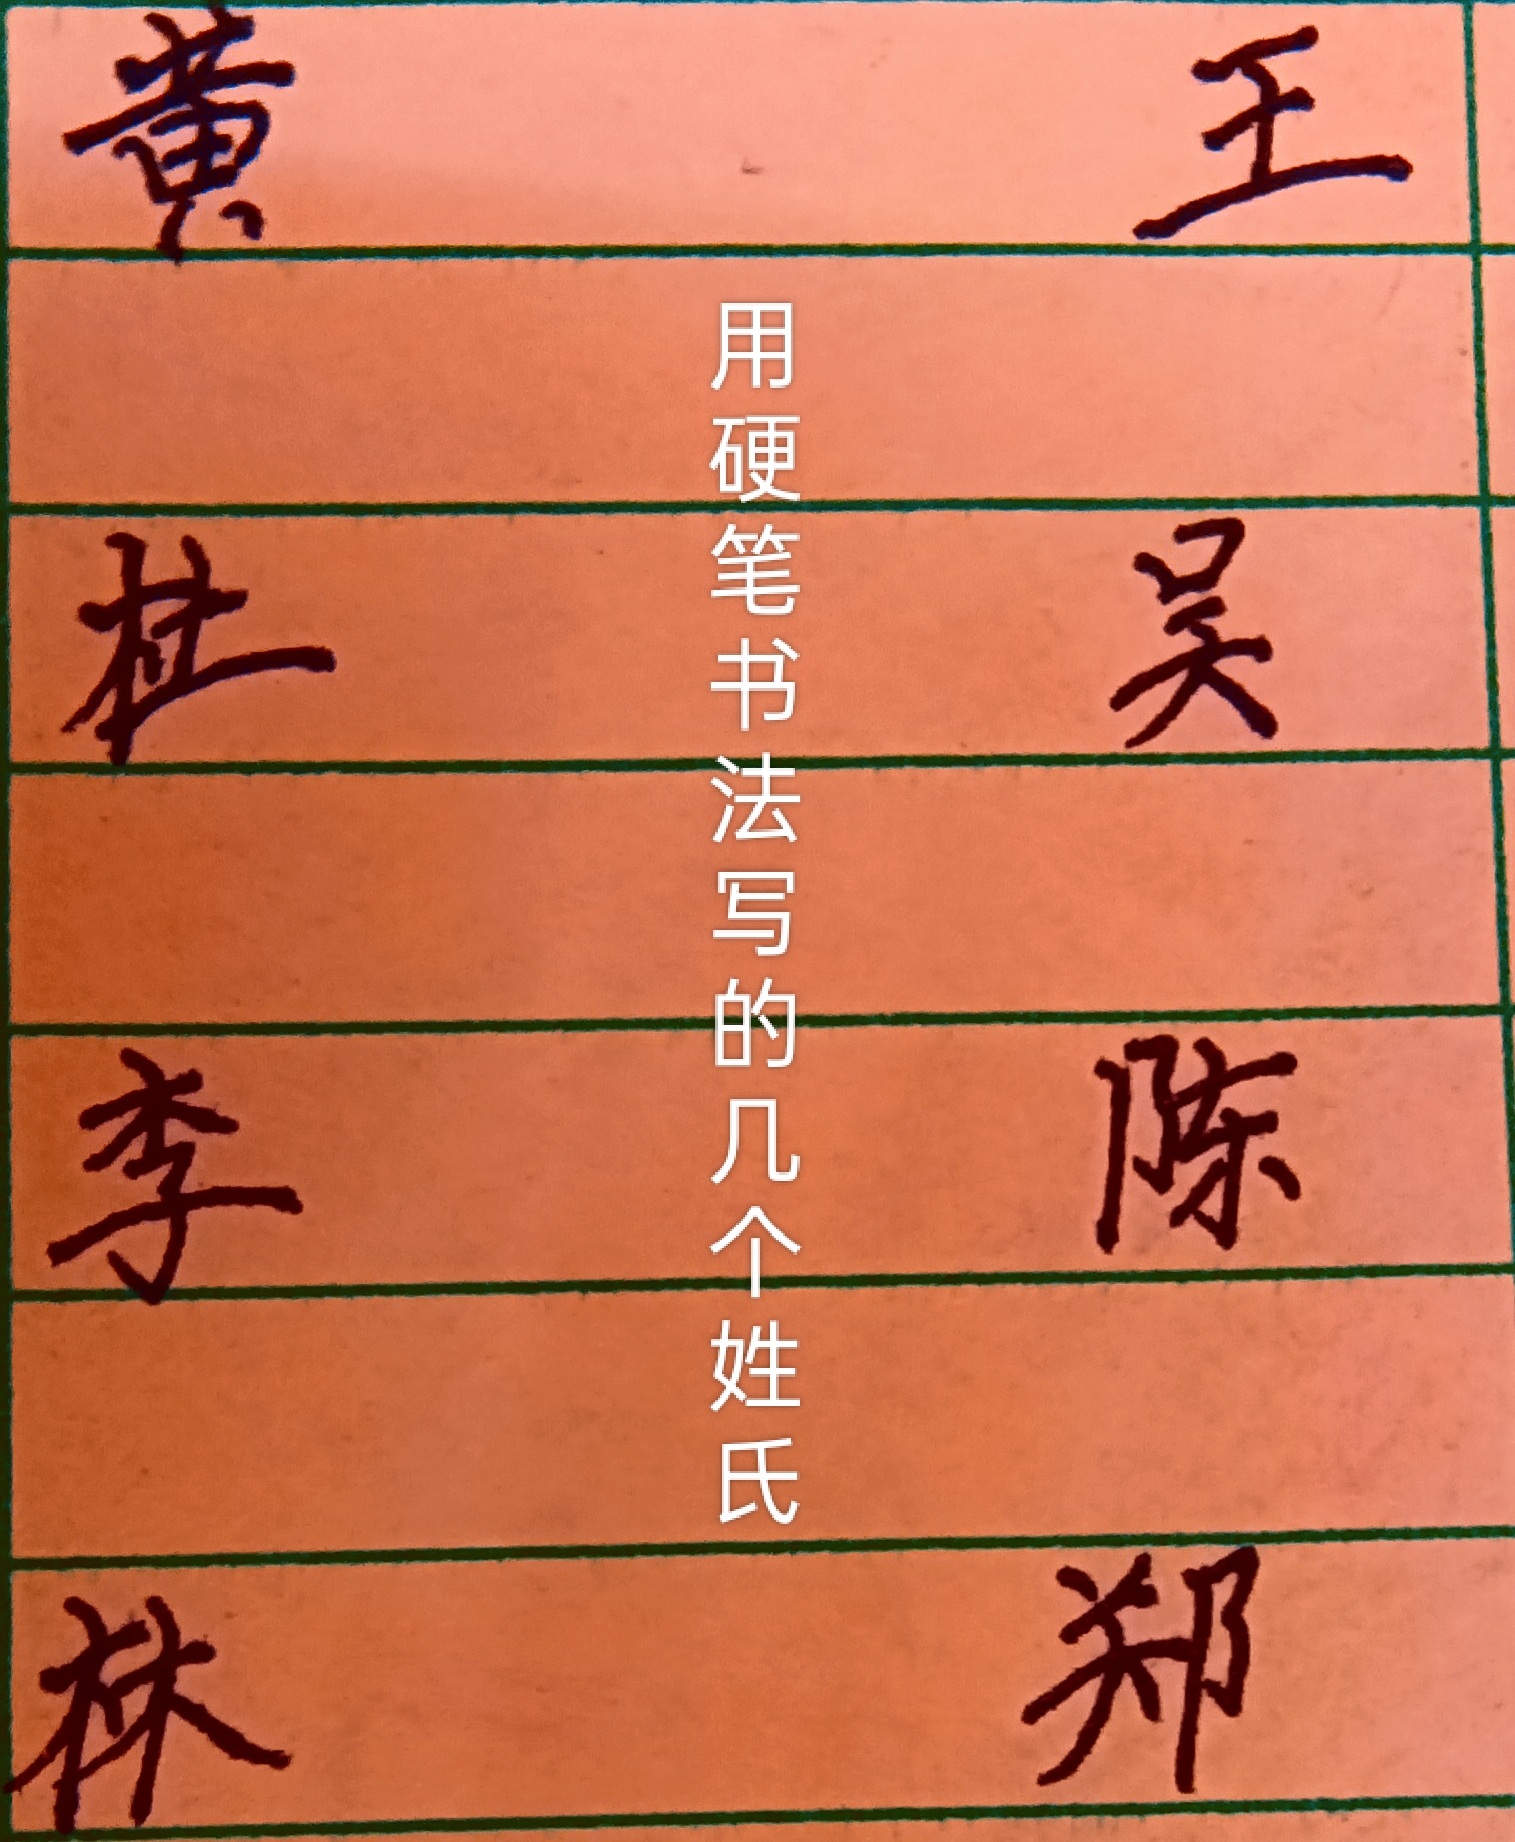 黄 王
用硬笔书法写的几个姓氏
杜 吴
李 陈
林 郑